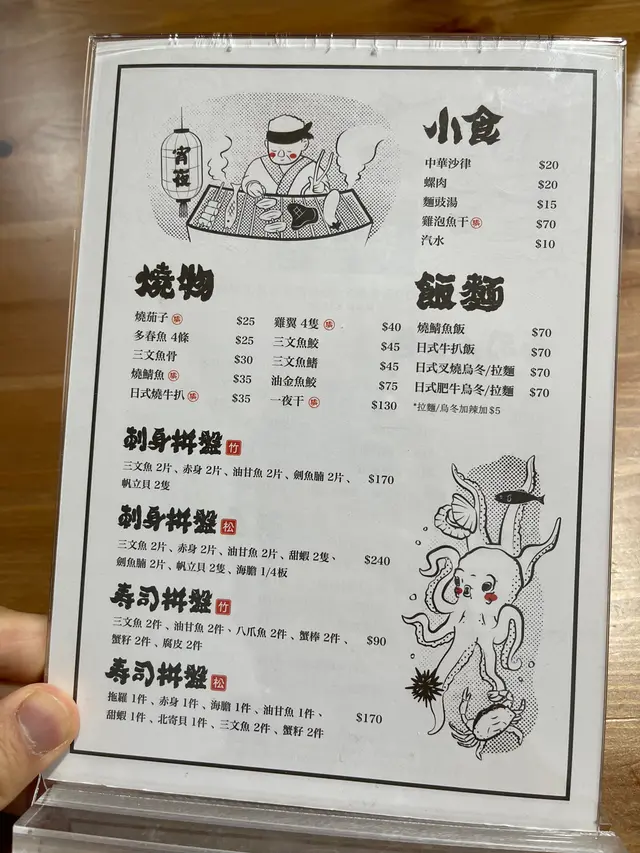 宵夜
小食
中華沙律 $20
螺肉 $20
麵豉湯 $15
雞泡魚干 $70
汽水 $10
燒物
燒茄子 $25
多春魚 4條 $25
三文魚骨 $30
燒鯖魚 $35
日式燒牛扒 $35
雞翼 4隻 $40
三文魚鮫 $45
三文魚鰭 $45
油金魚鮫 $75
一夜干 $130
飯麵
燒鯖魚飯 $70
日式牛扒飯 $70
日式叉燒烏冬/拉麵 $70
日式肥牛烏冬/拉麵 $70
*拉麵/烏冬加辣加 $5
刺身拼盤 竹
三文魚 2片、赤身 2片、油甘魚 2片、劍魚腩 2片、 $170
帆立貝 2隻
刺身拼盤 松
三文魚 2片、赤身 2片、油甘魚 2片、甜蝦 2隻、 $240
劍魚腩 2片、帆立貝 2隻、海膽 1/4板
壽司拼盤 竹
三文魚 2件、油甘魚 2件、八爪魚 2件、蟹棒 2件、 $90
蟹籽 2件、腐皮 2件
壽司拼盤 松
拖羅 1件、赤身 1件、海膽 1件、油甘魚 1件、 $170
甜蝦 1件、北寄貝 1件、三文魚 2件、蟹籽 2件